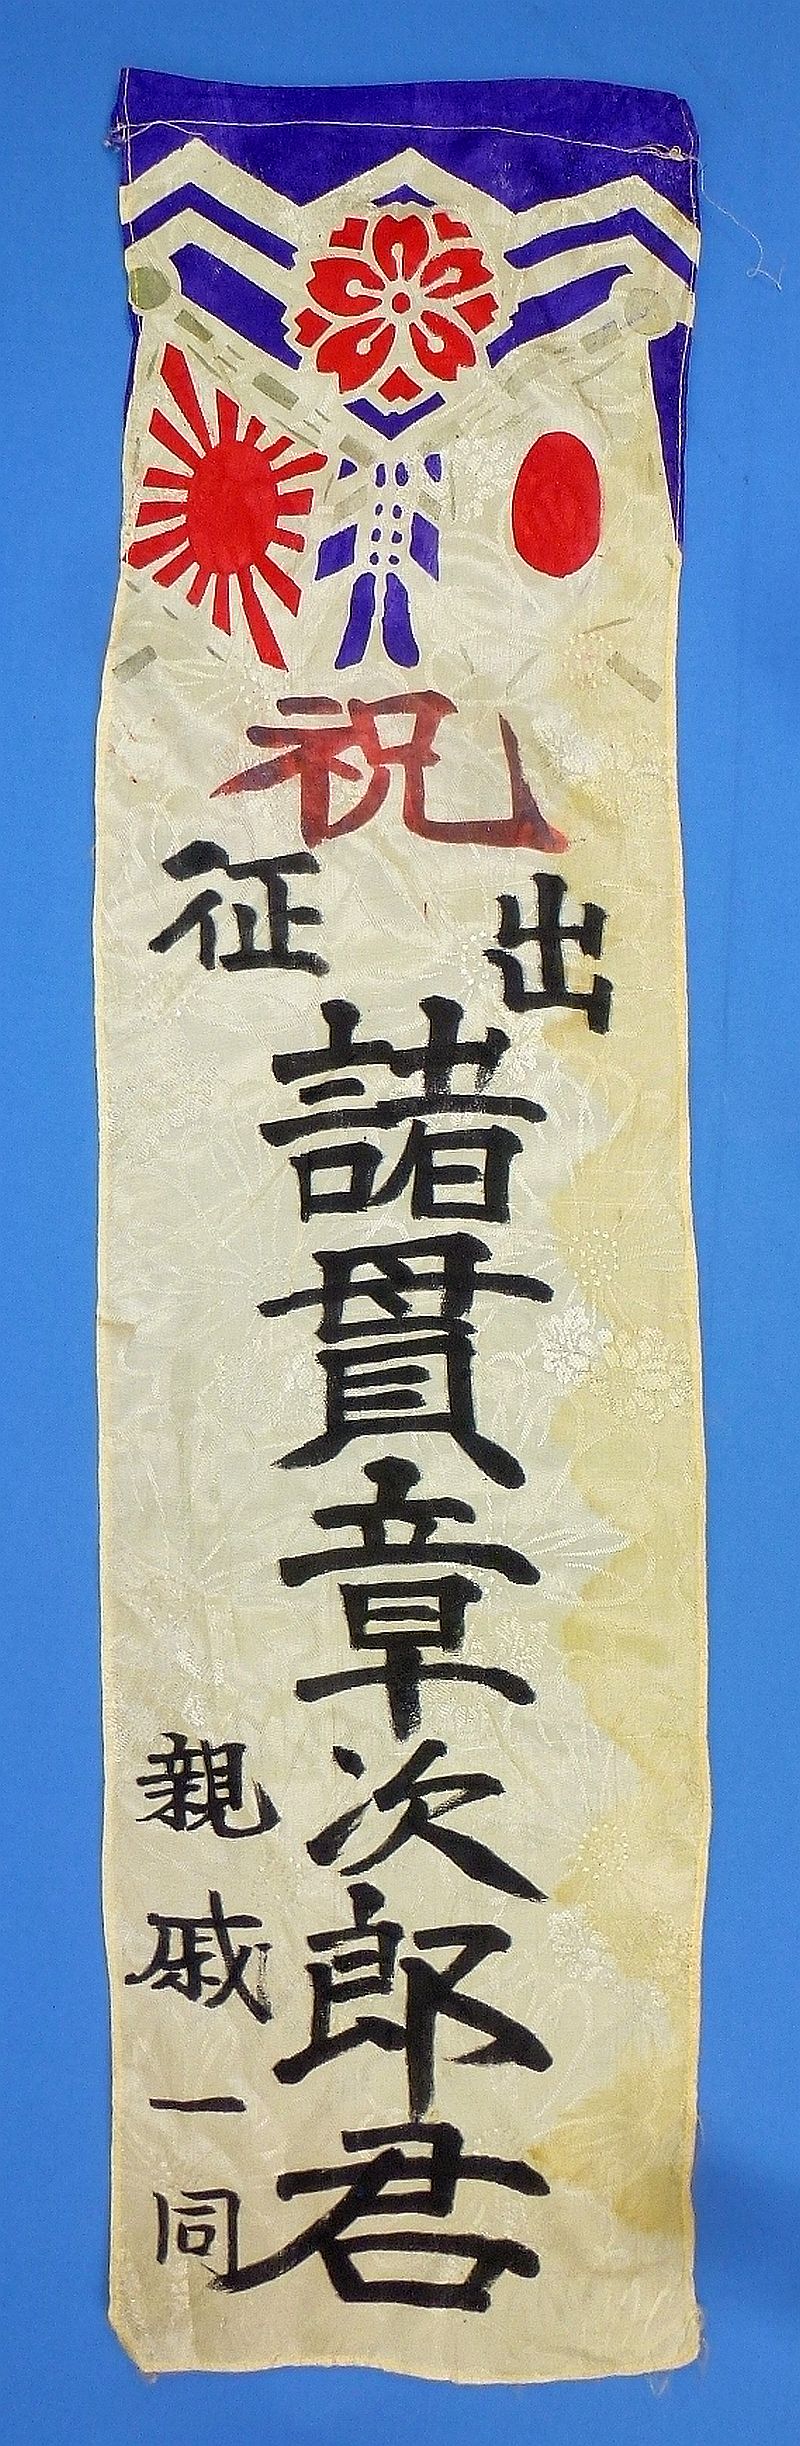 祝
出征
諸貫章次郎君
親戚一同